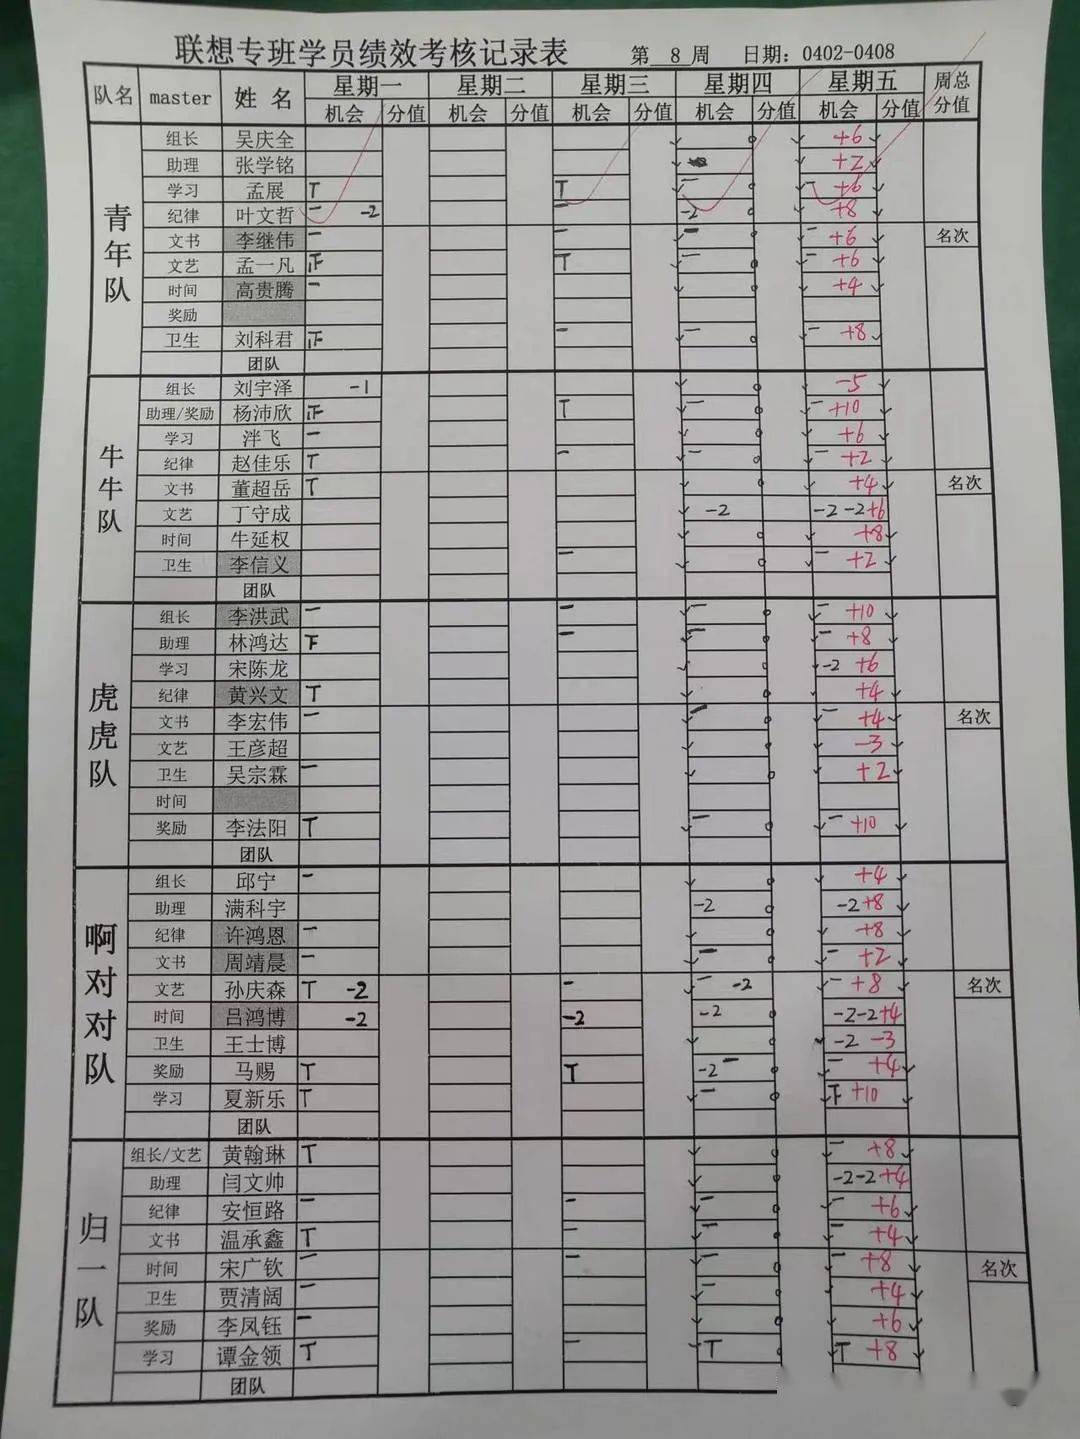 联想专班学员绩效考核记录表 第 8 周 日期：0402-0408
队名 master 姓名 星期一 星期二 星期三 星期四 星期五 周总分值
机会 分值 机会 分值 机会 分值 机会 分值 机会 分值
青年队
组长 吴庆全 +6
助理 张学铭 +2
学习 孟展 T T 一 一 +6
纪律 叶文哲 一 -2 一 -2 +8
文书 李继伟 一 一 一 一 +6 名次
文艺 孟一凡 正 T 一 一 +6
时间 高贵腾 一 +4
奖励
卫生 刘科君 正 一 一 一 +8
团队
牛牛队
组长 刘宇泽 -1 -5
助理/奖励 杨沛欣 正 T 一 一 +10
学习 泮飞 一 +6
纪律 赵佳乐 T 一 一 一 +2
文书 董超岳 T +4 名次
文艺 丁守成 -2 -2 -2 +6
时间 牛延权 +8
卫生 李信义 一 一 +2
团队
虎虎队
组长 李洪武 一 一 一 一 +10
助理 林鸿达 下 一 一 一 +8
学习 宋陈龙 -2 +6
纪律 黄兴文 T +4
文书 李宏伟 一 一 一 +4 名次
文艺 王彦超 -3
卫生 吴宗霖 一 +2
时间
奖励 李法阳 T 一 一 +10
团队
啊对对队
组长 邱宁 一 +4
助理 满科宇 -2 -2 +8
纪律 许鸿恩 一 +8
文书 周靖晨 一 一 一 +2
文艺 孙庆森 T -2 一 一 -2 一 +8 名次
时间 吕鸿博 -2 -2 -2 -2 -2 +4
卫生 王士博 -2 -3
奖励 马赐 T T -2 一 一 +4
学习 夏新乐 T 一 下 +10
团队
归一队
组长/文艺 黄翰琳 T 一 +8
助理 闫文帅 -2 -2 +4
纪律 安恒路 一 一 一 一 +6
文书 温承鑫 T 一 一 一 +4
时间 宋广钦 一 一 一 一 +8 名次
卫生 贾清阔 一 一 +4
奖励 李凤钰 一 +6
学习 谭金领 T 一 T T +8
团队